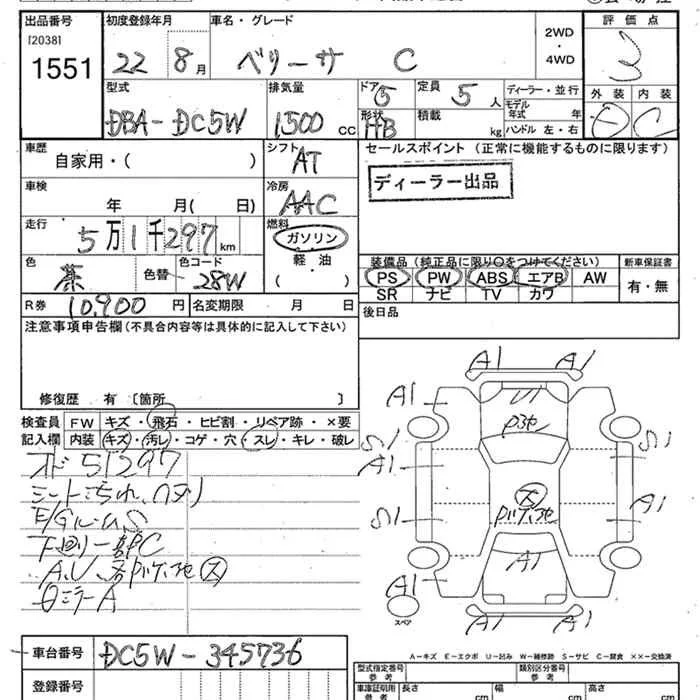 出品番号 初度登録年月 車名・グレード 評価点
[2038]
1551 22 8月 ベリーサ C 2WD・4WD 3
型式 排気量 ドア 定員 ディーラー・並行 外装 内装
DBA-DC5W 1500 CC 5 5人 モデル年式 年 D C
形状 積載 ハンドル 左・右
HB kg
車歴 シフト セールスポイント (正常に機能するものに限ります)
自家用・( ) AT
ディーラー出品
車検 冷房
年 月( 日) AAC
走行 燃料
5万1千297km ガソリン
軽油
( )
色 色替 色コード 装備品 (純正品に限り〇をつけてください) 新車保証書
茶 28W PS PW ABS エアB AW 有・無
SR ナビ TV カワ
R券 10,900円 名変期限 月 日 後日品
注意事項申告欄 (不具合内容等は具体的に記入して下さい)
修復歴 有 〔箇所 〕
検査員 FW キズ・飛石・ヒビ割・リペア跡・×要
記入欄 内装 キズ・汚レ・コゲ・穴・スレ・キレ・破レ
オド 51297
シートごちれ、
E/GルームS
下廻り一部C
A.U、
ロミラーA
A1 A1
A1 U1
S1 S1
A1
A1
S1
A1
A1
A1 A1
スペア
A-キズ E-エクボ U-凹み W-補修跡 S-サビ C-腐食 ××-交換済
車台番号 DC5W-345736 型式指定番号 参考 類別区分番号 参考
登録番号 車庫証明用 参考 長さ cm 幅 cm 高さ cm